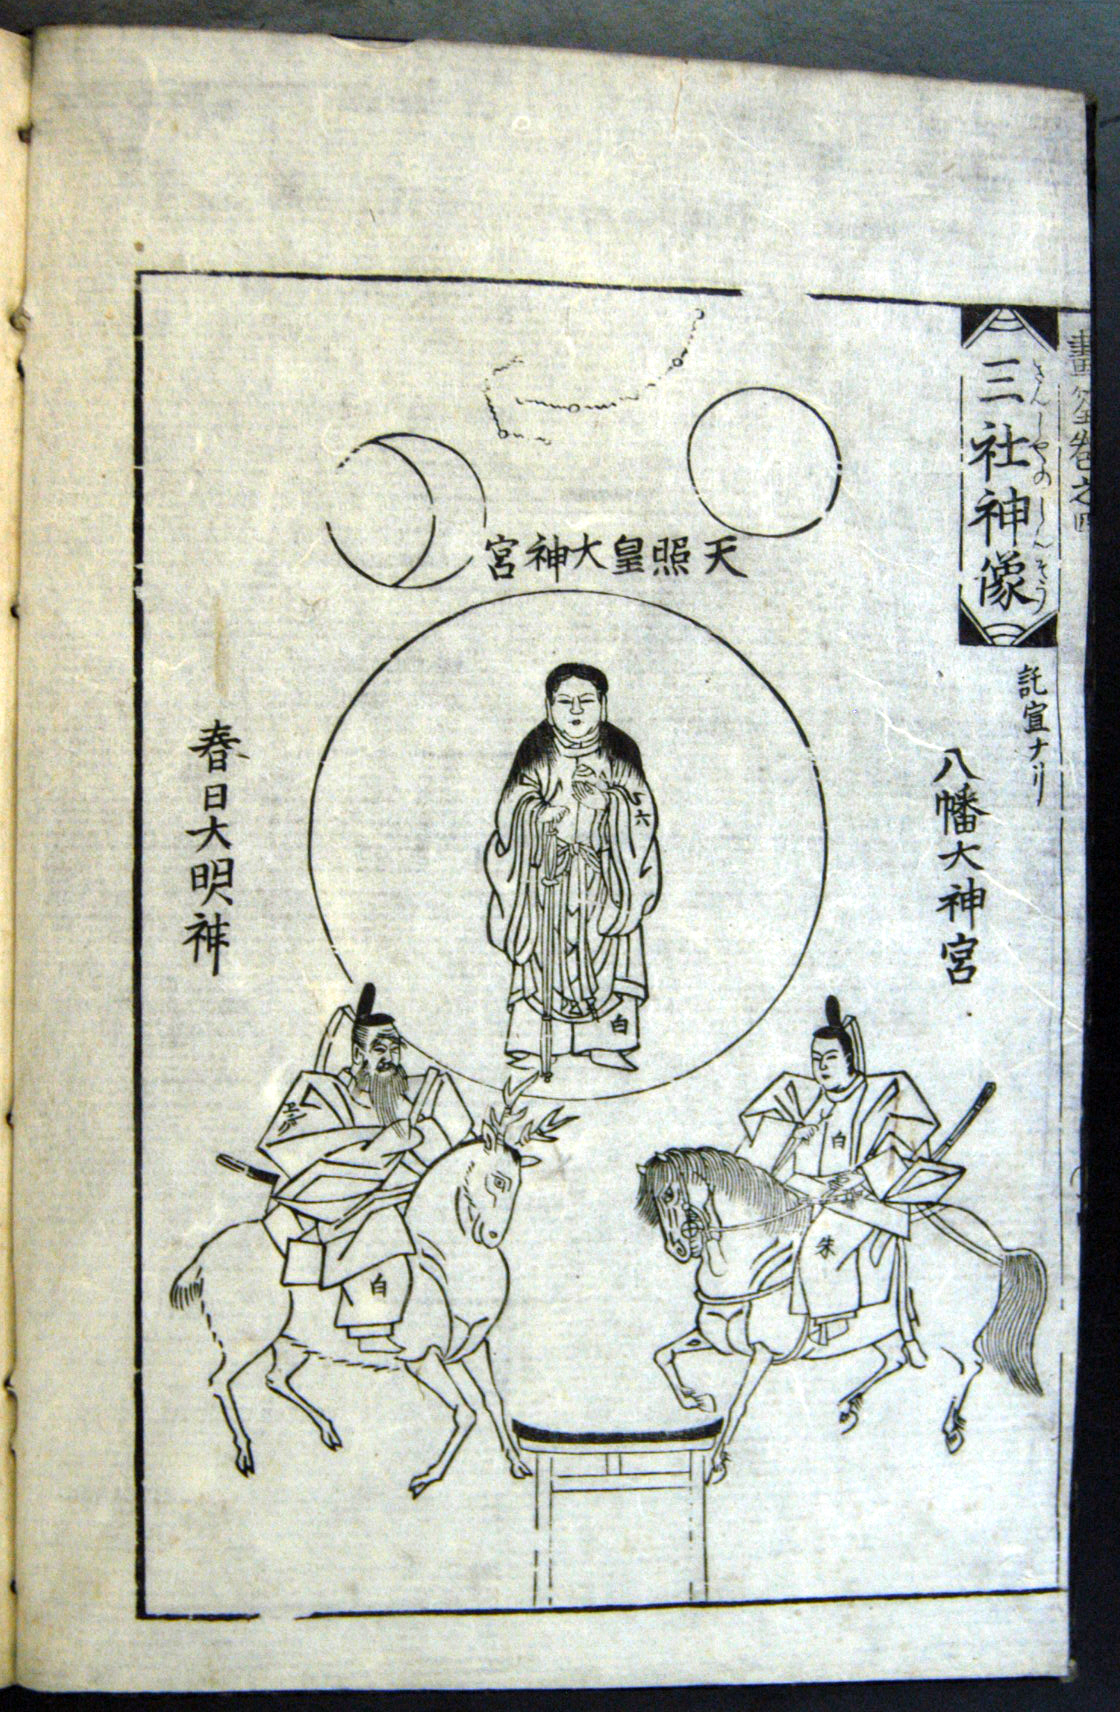 畫筌卷之四
三社神像
さんしやのしんぞう
託宣ナリ
八幡大神宮
天照皇大神宮
春日大明神
六
白
白
朱
白